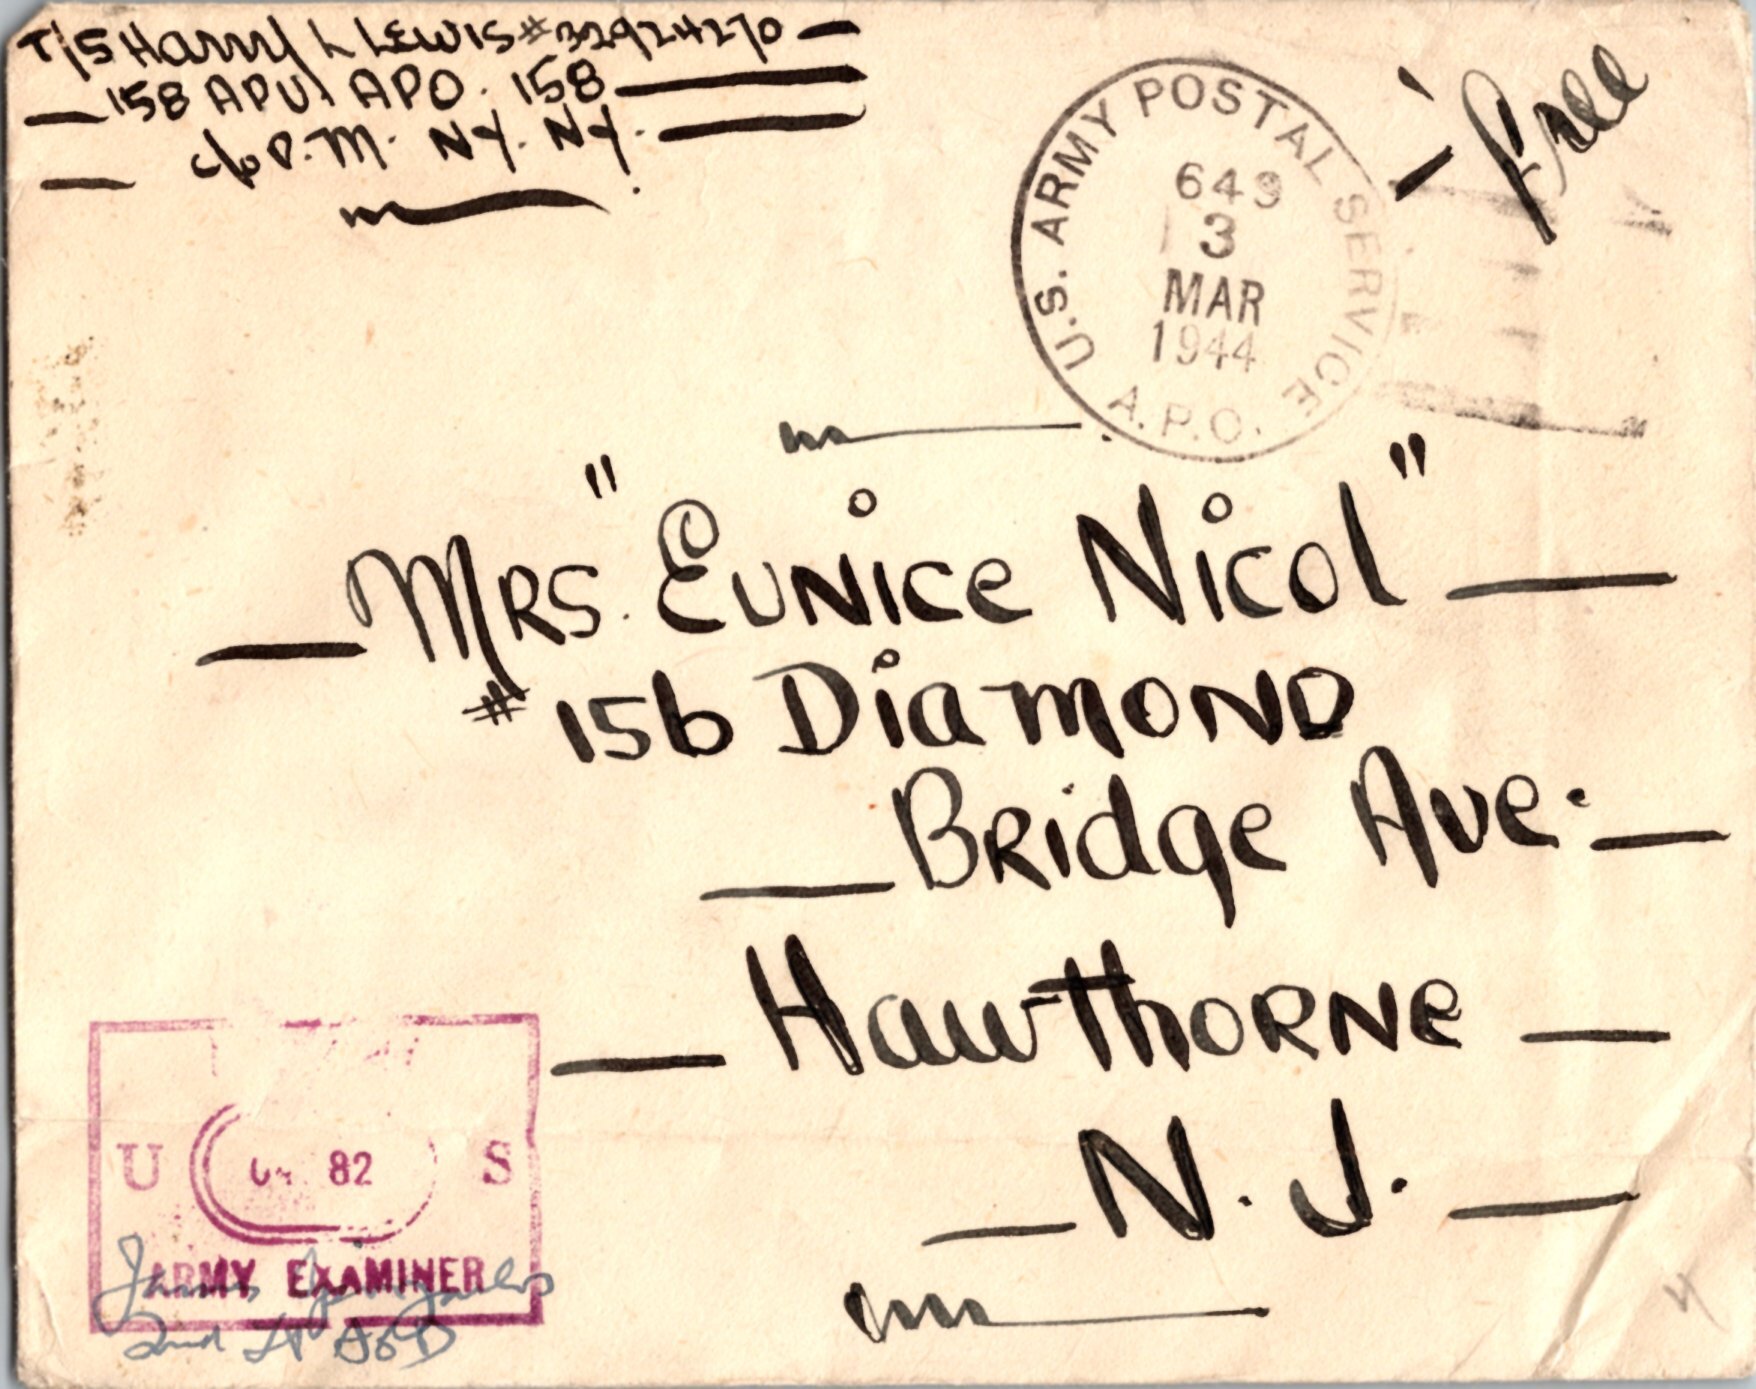 T/5 Harry L LEWIS #32924270
158 APU, APO. 158
c/o P.M. NY. NY.
Free
U.S. ARMY POSTAL SERVICE
649
3
MAR
1944
A.P.O.
Mrs. "Eunice Nicol"
#156 Diamond
Bridge Ave.
Hawthorne
N. J.
U 82 S
ARMY EXAMINER
2nd Lt